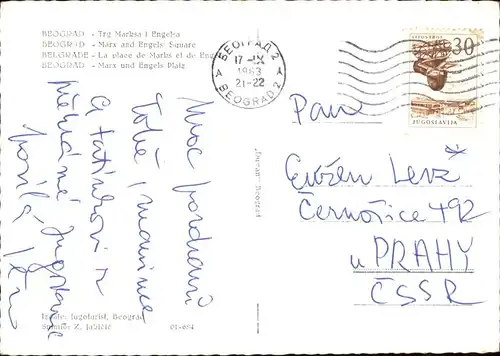 BEOGRAD - Trg Marksa i Engelsa
BEOGRAD - Marx and Engels' Square
BELGRADE - La place de Marks et de Eng
BEOGRAD - Marx und Engels Platz
БЕОГРАД 2
17-IX
1963
21-22
BEOGRAD 2
JUGOSLAVIJA
30
Moc pozdravů
Tobě, mamince
a tatínkovi z
překrásné Jugoslávie
posílá
Pan
Evžen Lenz
Černošice 492
u PRAHY
ČSSR
Izdaje: Jugoturist, Beograd
Snimio: Z. Jabličić
01-664